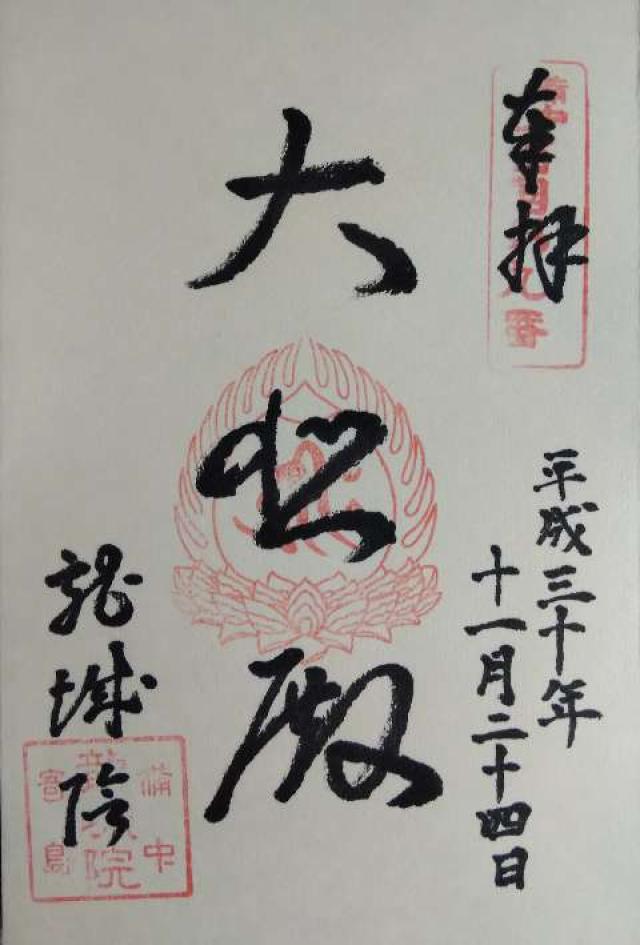 奉拝
平成三十年
十一月二十四日
大悲殿
龍城院
備中
龍城院
寄島